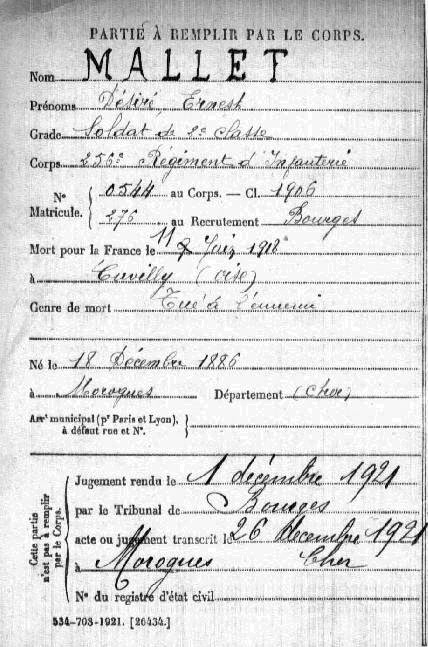 PARTIE À REMPLIR PAR LE CORPS.
Nom MALLET
Prénoms Désiré, Ernest
Grade Soldat de 2e classe
Corps 256e Régiment d'Infanterie
N° Matricule. 0544 au Corps. — Cl. 1906
276 au Recrutement Bourges
Mort pour la France le 11 Juin 1918
à Cuvilly (Oise)
Genre de mort Tué à l'ennemi
Né le 18 Décembre 1886
à Morogues Département (Cher)
Arrt municipal (pr Paris et Lyon),
à défaut rue et N°.
Cette partie n'est pas à remplir par le Corps.
Jugement rendu le 1 décembre 1921
par le Tribunal de Bourges
acte ou jugement transcrit le 26 décembre 1921
à Morogues Cher
N° du registre d'état civil
534-708-1921. [26434.]